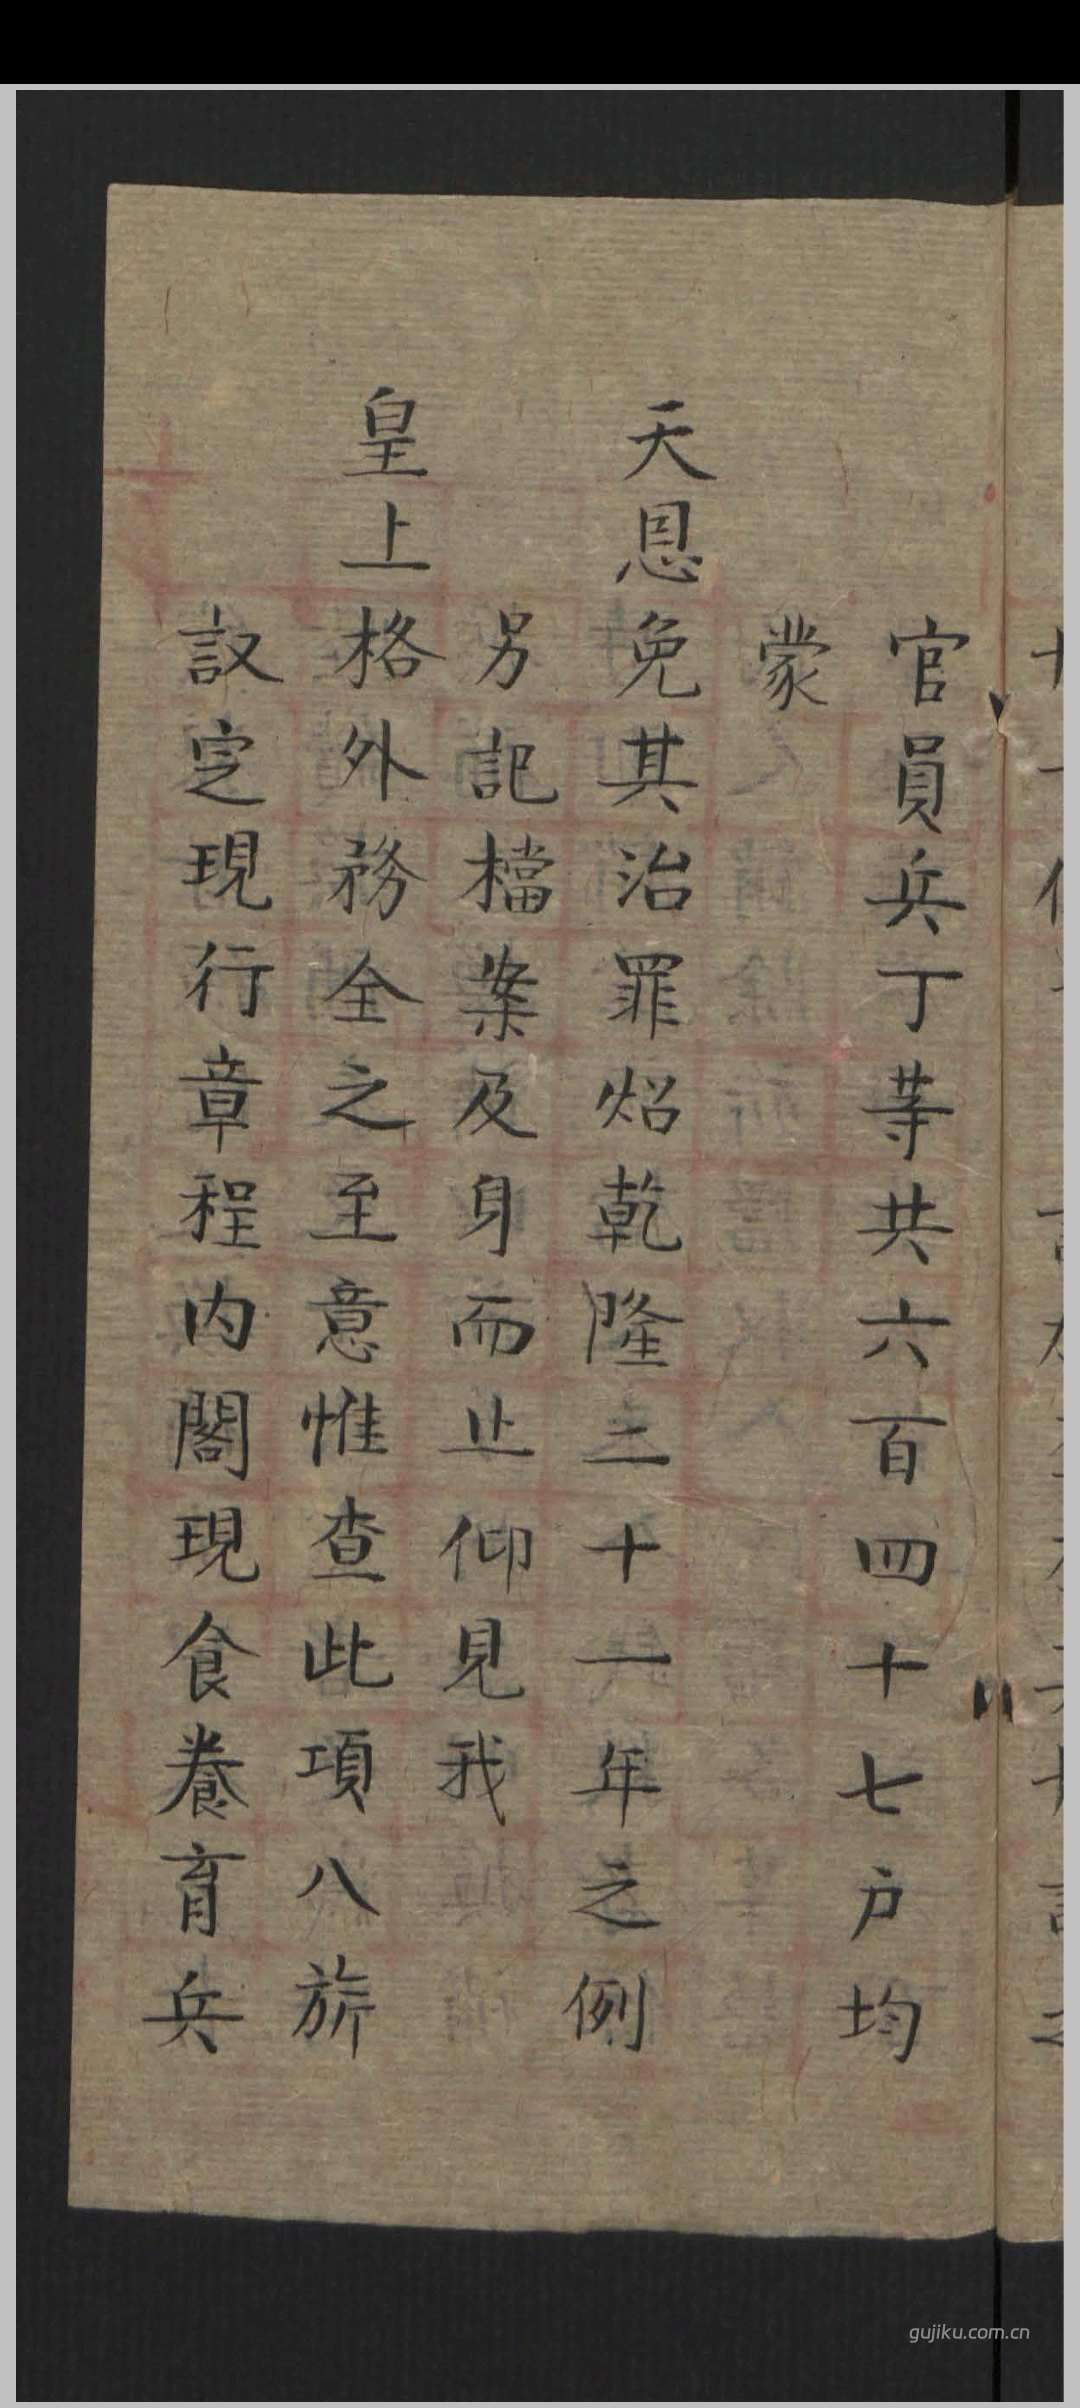 官員兵丁等共六百四十七户均
蒙
天恩免其治罪炤乾隆二十一年之例
另記檔案及身而止仰見我
皇上格外務全之至意惟查此項八旂
議定現行章程内閣現食養育兵
gujiku.com.cn